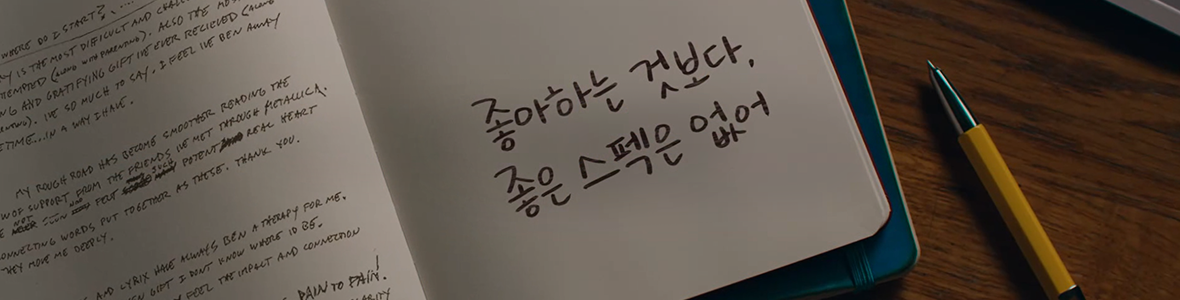 WHERE DO I START?
IS THE MOST DIFFICULT AND
(ALONG WITH PARENTING). ALSO THE MOST
AND GRATIFYING GIFT I'VE EVER RECIEVED (ALONG
I'VE SO MUCH TO SAY. I FEEL I'VE BEN AWAY
TIME...IN A WAY I HAVE.
MY ROUGH ROAD HAS BECOME SMOOTHER READING THE
OF SUPPORT FROM THE FRIENDS I'VE MET THROUGH METALLICA.
FELT SUCH POTENT REAL HEART
CONNECTING WORDS PUT TOGETHER AS THESE. THANK YOU.
THEY MOVE ME DEEPLY.
AND LYRIX HAVE ALWAYS BEN A THERAPY FOR ME.
GIFT I DONT KNOW WHERE ID BE.
FEEL THE IMPACT AND CONNECTION
PAIN TO PAIN!
좋아하는 것보다,
좋은 스펙은 없어